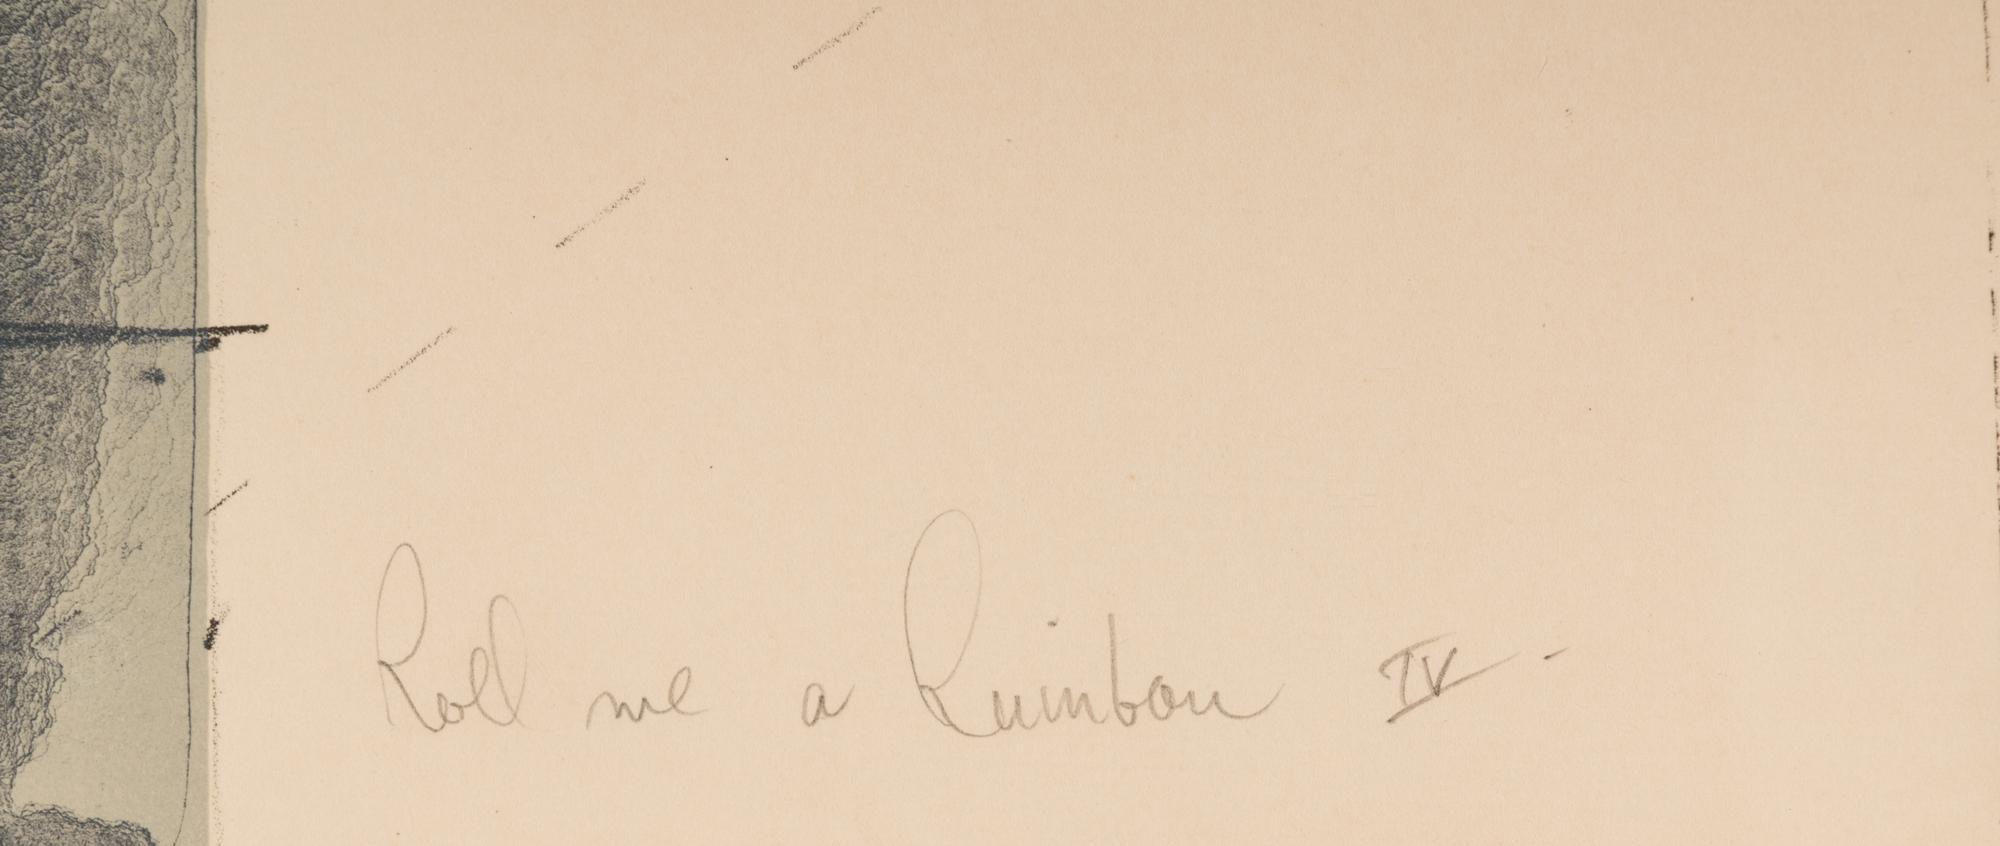 Roll me a Rainbow IV -